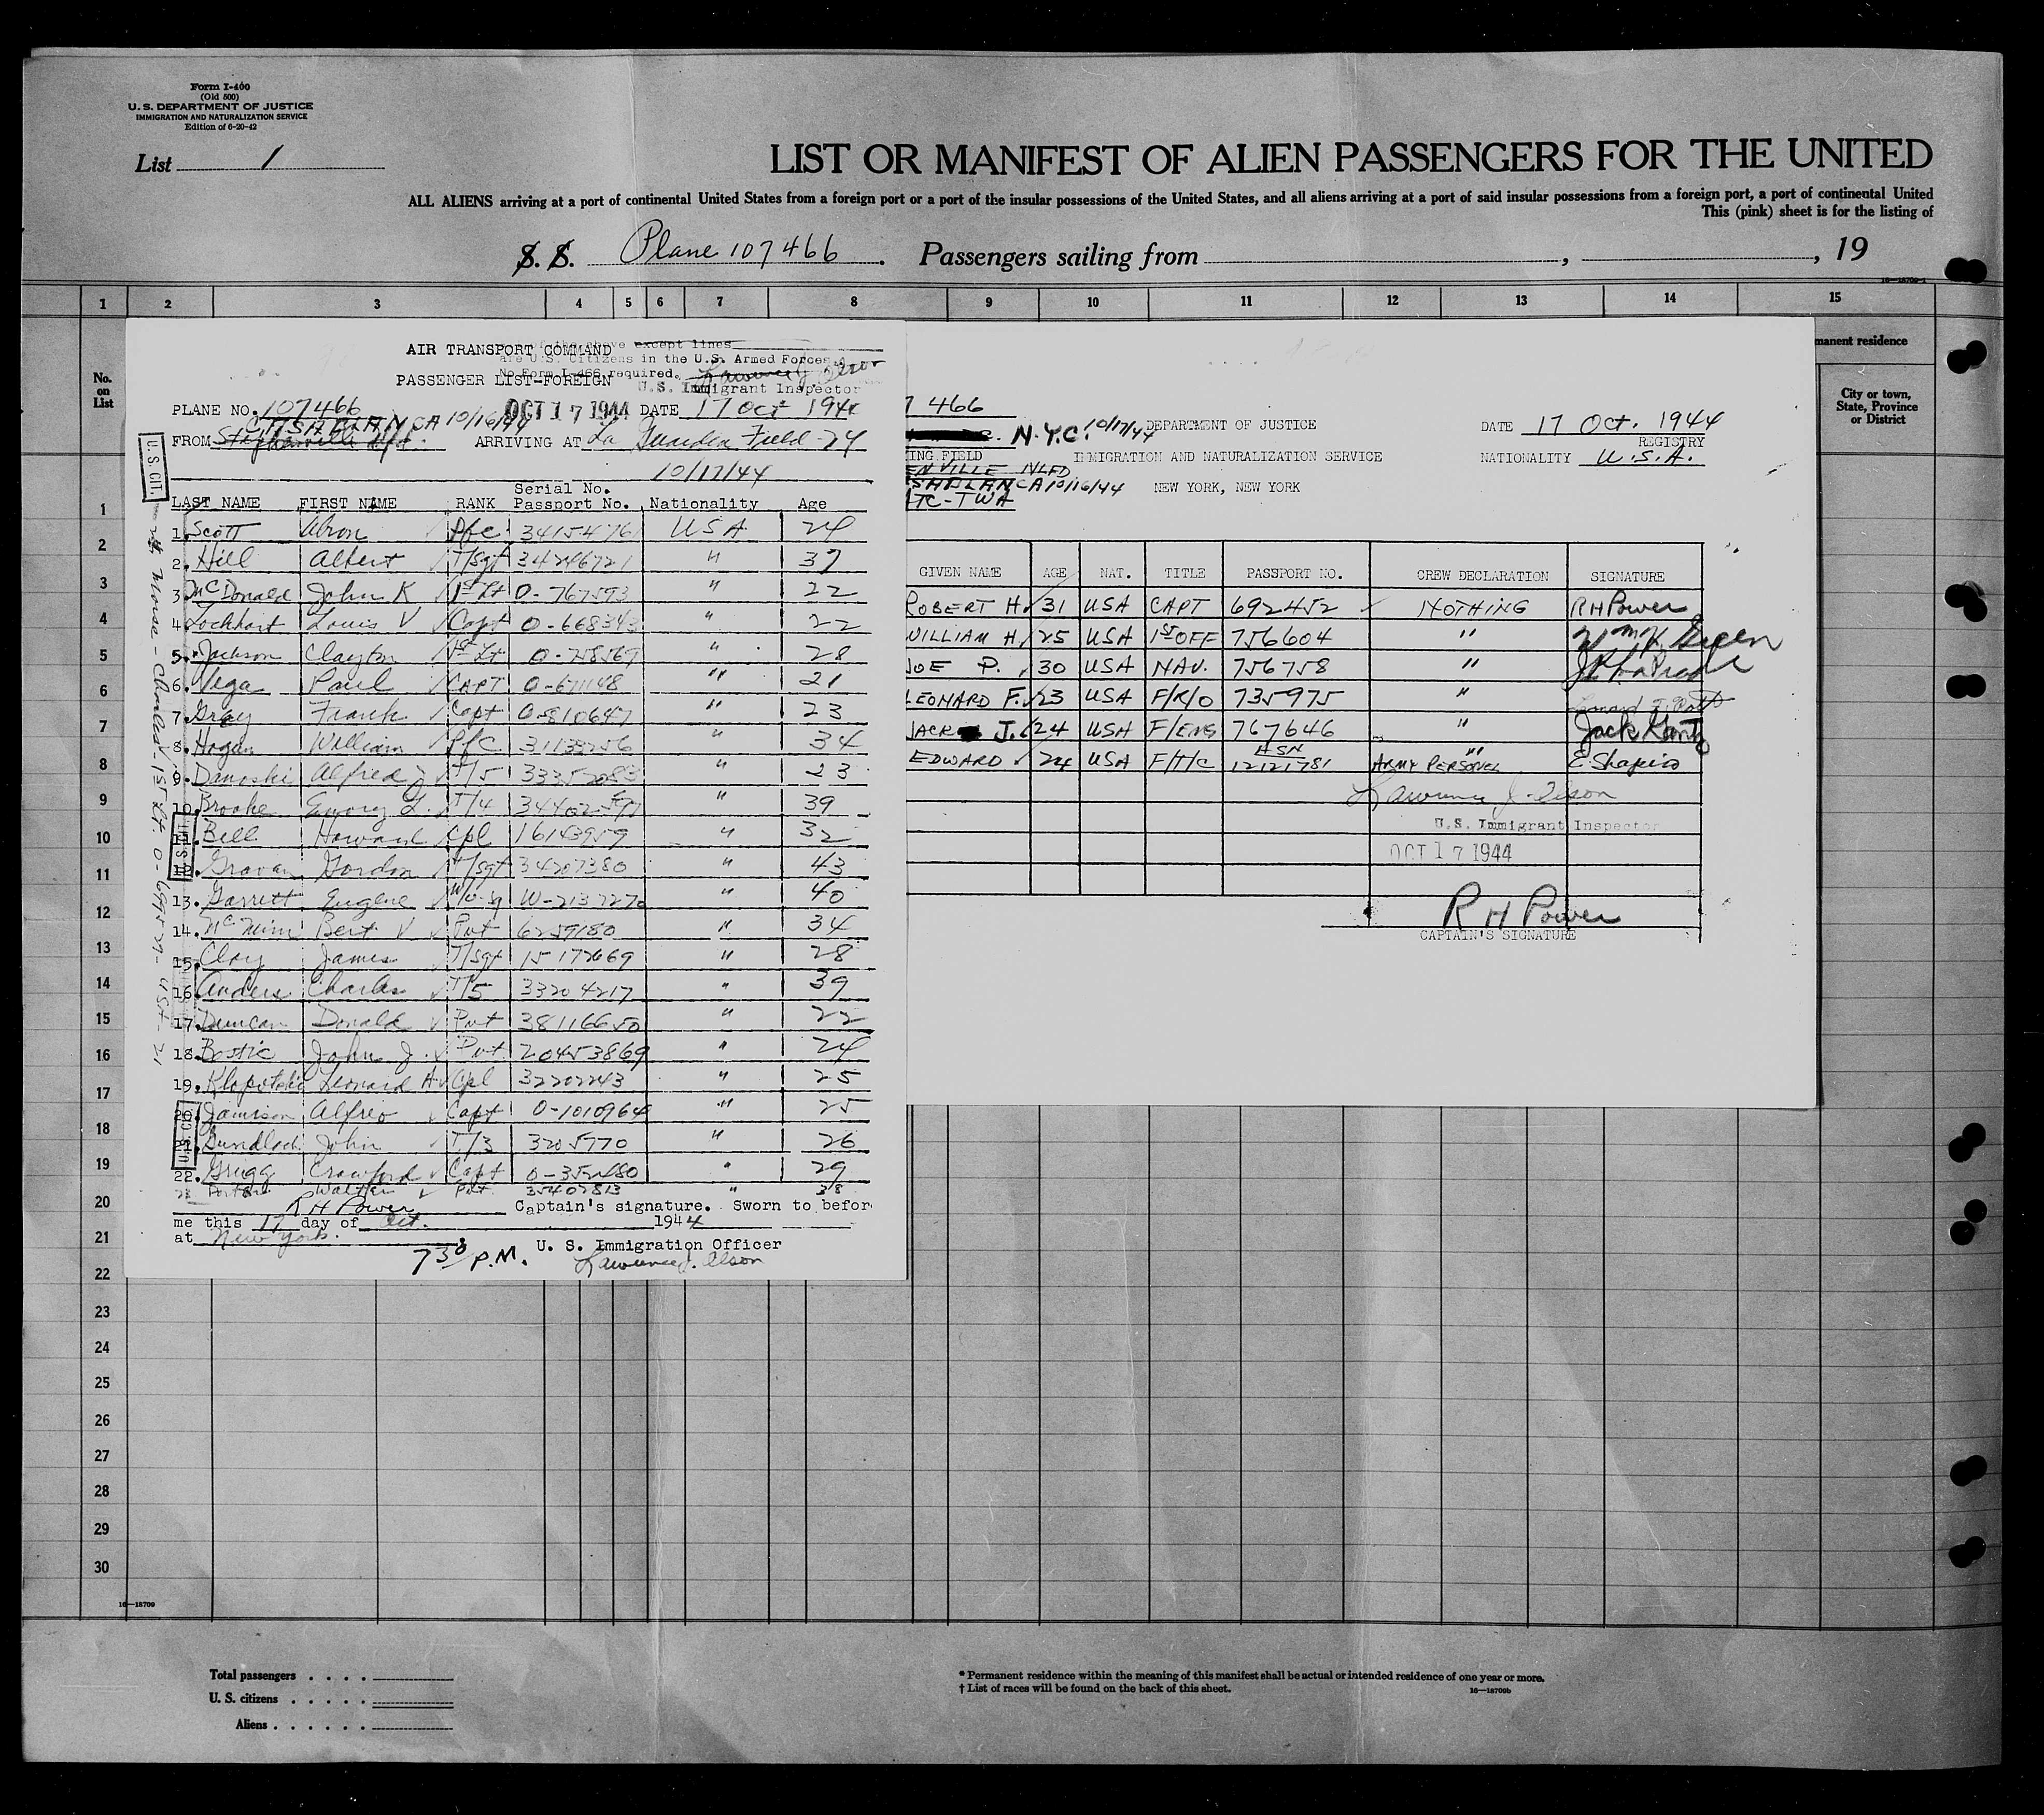 Form I-400
(Old 500)
U. S. DEPARTMENT OF JUSTICE
IMMIGRATION AND NATURALIZATION SERVICE
Edition of 6-20-42
List 1
LIST OR MANIFEST OF ALIEN PASSENGERS FOR THE UNITED
ALL ALIENS arriving at a port of continental United States from a foreign port or a port of the insular possessions of the United States, and all aliens arriving at a port of said insular possessions from a foreign port, a port of continental United
This (pink) sheet is for the listing of
S. S. Plane 107466. Passengers sailing from , , 19
1 2 3 4 5 6 7 8 9 10 11 12 13 14 15
No. on List
manent residence
City or town, State, Province or District
AIR TRANSPORT COMMAND
the above except lines
are U.S. Citizens in the U.S. Armed Forces.
No Form I-466 required.
PASSENGER LIST-FOREIGN
U.S. Immigrant Inspector
PLANE NO. 107466 OCT 17 1944 DATE 17 Oct 1944
10/16/44
FROM Stephenville ARRIVING AT La Guardia Field-24
10/17/44
U.S. CIT.
LAST NAME FIRST NAME RANK Serial No. Passport No. Nationality Age
1. Scott Pfc 34154761 USA 24
2. Hill Albert T/Sgt 34246721 " 37
3. McDonald John K 1st Lt O-767593 " 22
4. Lockhart Louis V Capt O-668343 " 22
5. Jackson Clayton 1st Lt O-758569 " 28
6. Vega Paul CAPT O-671148 " 21
7. Gray Frank Capt O-810647 " 23
8. Hogan William Pfc 31133256 " 34
9. Alfred J T/5 33352083 " 23
10. Brooke Emory L. T/4 " 39
11. Bell Howard Cpl 16143959 " 32
12. Gordon T/Sgt 34207380 " 43
13. Garrett Eugene W-2137270 " 40
14. Bert V Pvt 6259180 " 34
15. Clay James T/Sgt 15172669 " 28
16. Anders Charles T/5 33204217 " 39
17. Duncan Donald Pvt 38116650 " 22
18. Bostic John J. Pvt 20453869 " 24
19. Leonard A Cpl 32202243 " 25
20. Jamison Alfred Capt O-1010964 " 25
21. Gundlach John T/3 3205770 " 26
22. Grugg Crawford Capt " 29
23 Porter Walter Pvt 35407813 " 38
R H Power Captain's signature. Sworn to befor
me this 17 day of Oct. 1944
at New York.
730 P.M. U. S. Immigration Officer
Lawrence J. Olson
Morse - Charles V. 1st Lt.
7 466
N.Y.C. 10/17/44
DEPARTMENT OF JUSTICE
DATE 17 Oct. 1944
ING FIELD
IMMIGRATION AND NATURALIZATION SERVICE
REGISTRY
NATIONALITY U.S.A.
ENVILLE NLFD
10/16/44
NEW YORK, NEW YORK
ATC-TWA
GIVEN NAME AGE NAT. TITLE PASSPORT NO. CREW DECLARATION SIGNATURE
ROBERT H. 31 USA CAPT 692452 NOTHING RH Power
WILLIAM H. 25 USA 1ST OFF 756604 " Wm H. Green
JOE P. 30 USA NAV. 756758 "
LEONARD F. 23 USA F/R/O 735975 "
JACK J. 24 USA F/ENG 767646 "
EDWARD 24 USA F/T/C ASN 12121781 " ARMY PERSONEL E. Shapiro
Lawrence J. Olson
U.S. Immigrant Inspector
OCT 17 1944
R H Power
CAPTAIN'S SIGNATURE
1
2
3
4
5
6
7
8
9
10
11
12
13
14
15
16
17
18
19
20
21
22
23
24
25
26
27
28
29
30
16—18709
Total passengers . . . .
U. S. citizens . . . . .
Aliens . . . . . .
* Permanent residence within the meaning of this manifest shall be actual or intended residence of one year or more.
† List of races will be found on the back of this sheet.
16—18709b